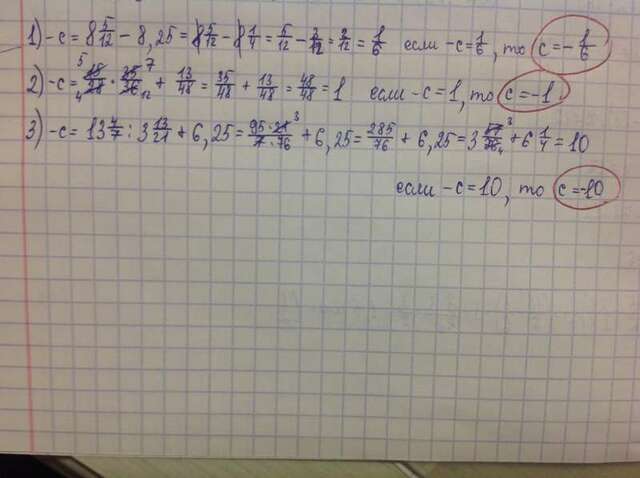 1) -c = 8 5/12 - 8,25 = 8 5/12 - 8 1/4 = 5/12 - 3/12 = 2/12 = 1/6 если -c = 1/6, то c = -1/6
2) -c = 15/28 · 35/36 + 13/48 = 35/48 + 13/48 = 48/48 = 1 если -c = 1, то c = -1
3) -c = 13 4/7 : 3 13/21 + 6,25 = 95·21/7·76 + 6,25 = 285/76 + 6,25 = 3 57/76 + 6 1/4 = 10
если -c = 10, то c = -10